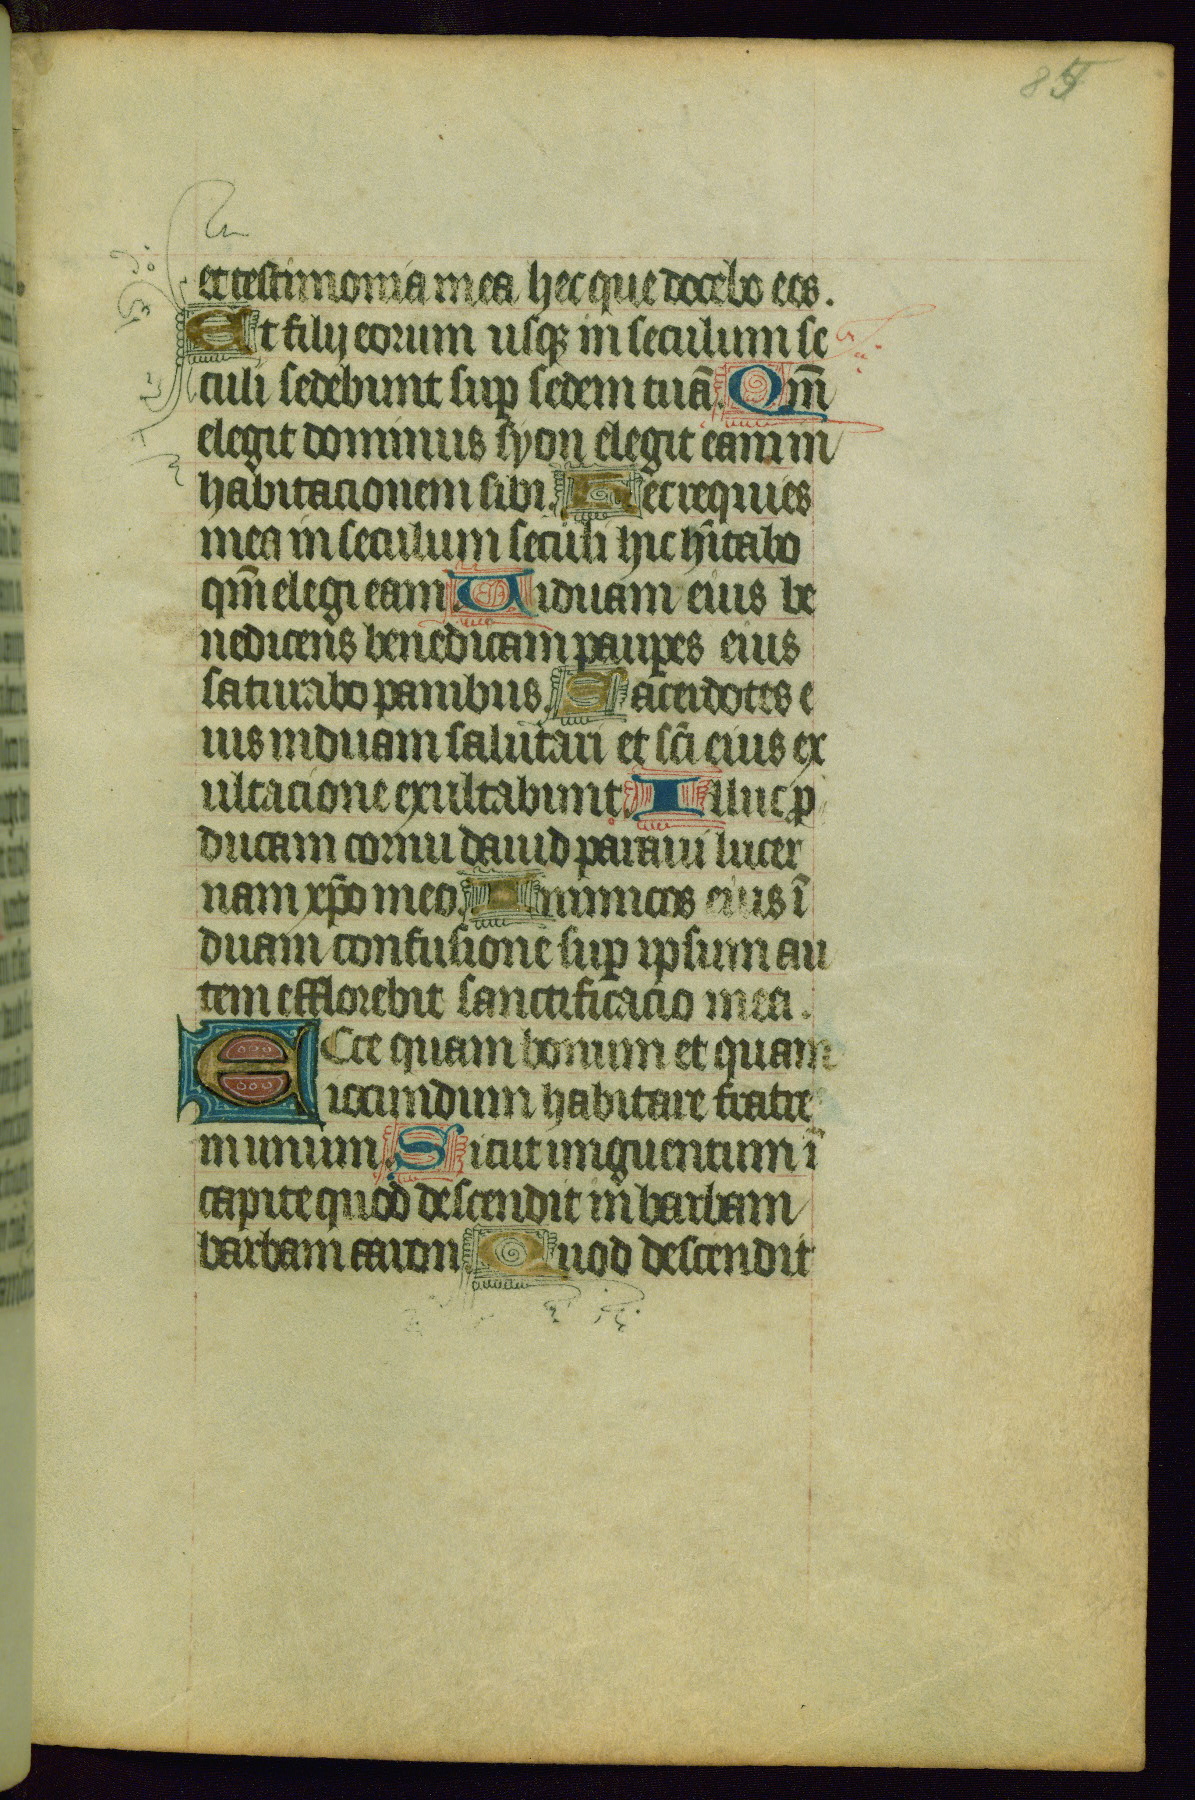 85
et testimonia mea hec que docebo eos.
Et filij eorum usq₃ in seculum se
culi sedebunt sup sedem tuā. Qm̄
elegit dominus syon elegit eam in
habitacionem sibi. Hec requies
mea in seculum seculi hic hītabo
qm̄ elegi eam. Uiduam eius be
nedicens benedicam paupes eius
saturabo panibus. Sacerdotes e
ius induam salutari et sc̄i eius ex
ultacione exultabunt. Illuc p
ducam cornu dauid paraui lucer
nam xp̄o meo. Inimicos eius ī
duam confusione sup ipsum au
tem efflorebit sanctificacio mea.
Ecce quam bonum et quam
iocundum habitare fratre
in unum. Sicut unguentum ī
capite quod descendit in barbam
barbam aaron. Quod descendit